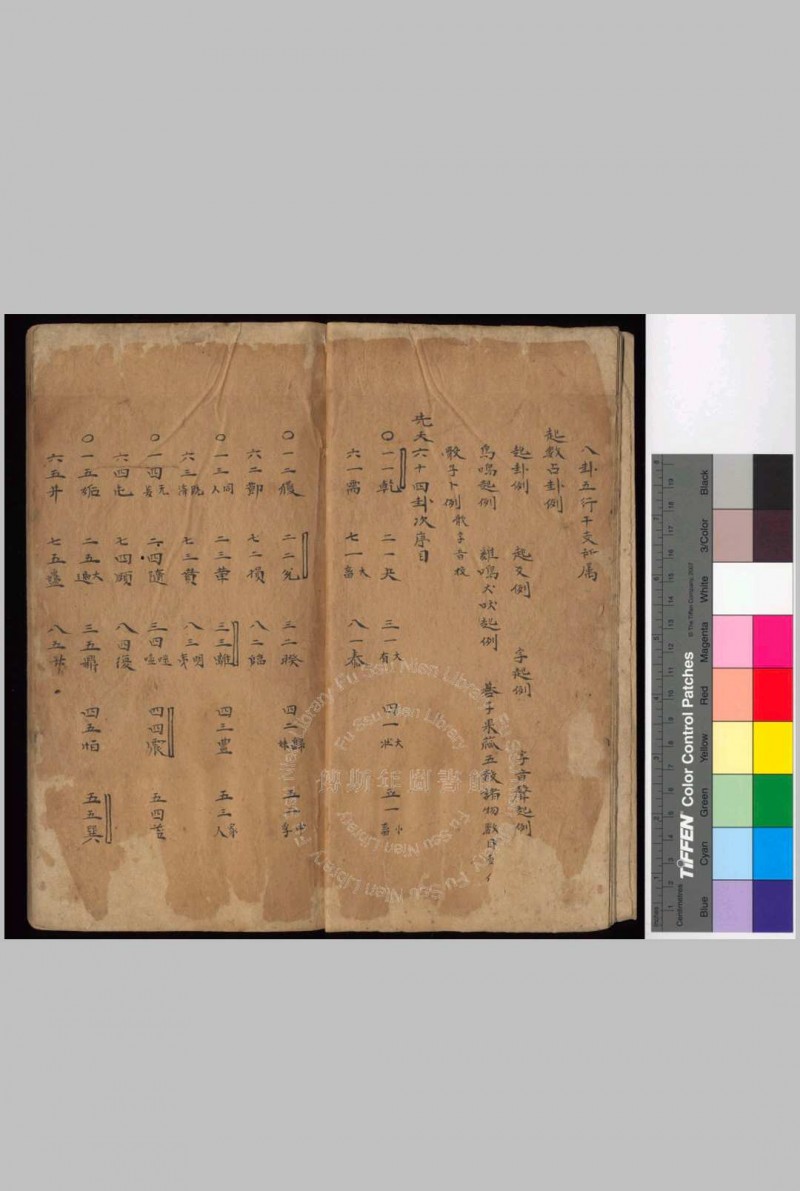 八卦五行干支所属
起數占卦例
起卦例　起爻例　字起例　字音聲起例
鳥鳴起例　雞鳴犬吠起例　器子果菰五穀諸物數目
骰子卜例　骰子古校
先天六十四卦次序目
〇一一乾　二一夬　三一大有　四一大壯　五一小畜
六一需　七一大畜　八一泰
〇一二履　二二兌　三二睽　四二歸妹　五二中孚
六二節　七二損　八二臨
〇一三同人　二三革　三三離　四三豐　五三家人
六三既濟　七三賁　八三明夷
〇一四无妄　二四隨　三四噬嗑　四四震　五四益
六四屯　七四頤　八四復
〇一五姤　二五大過　三五鼎　四五恒　五五巽
六五井　七五蠱　八五升
傅斯年圖書館
Fu Ssu Nien Library
Centimetres
TIFFEN Color Control Patches
© The Tiffen Company, 2007
Blue
Cyan
Green
Yellow
Red
Magenta
White
3/Color
Black